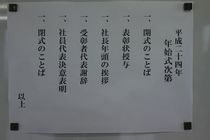 平成二十四年
年始式次第
一、開式のことば
一、表彰状授与
一、社長年頭の挨拶
一、受彰者代表謝辞
一、社員代表決意表明
一、閉式のことば
以上